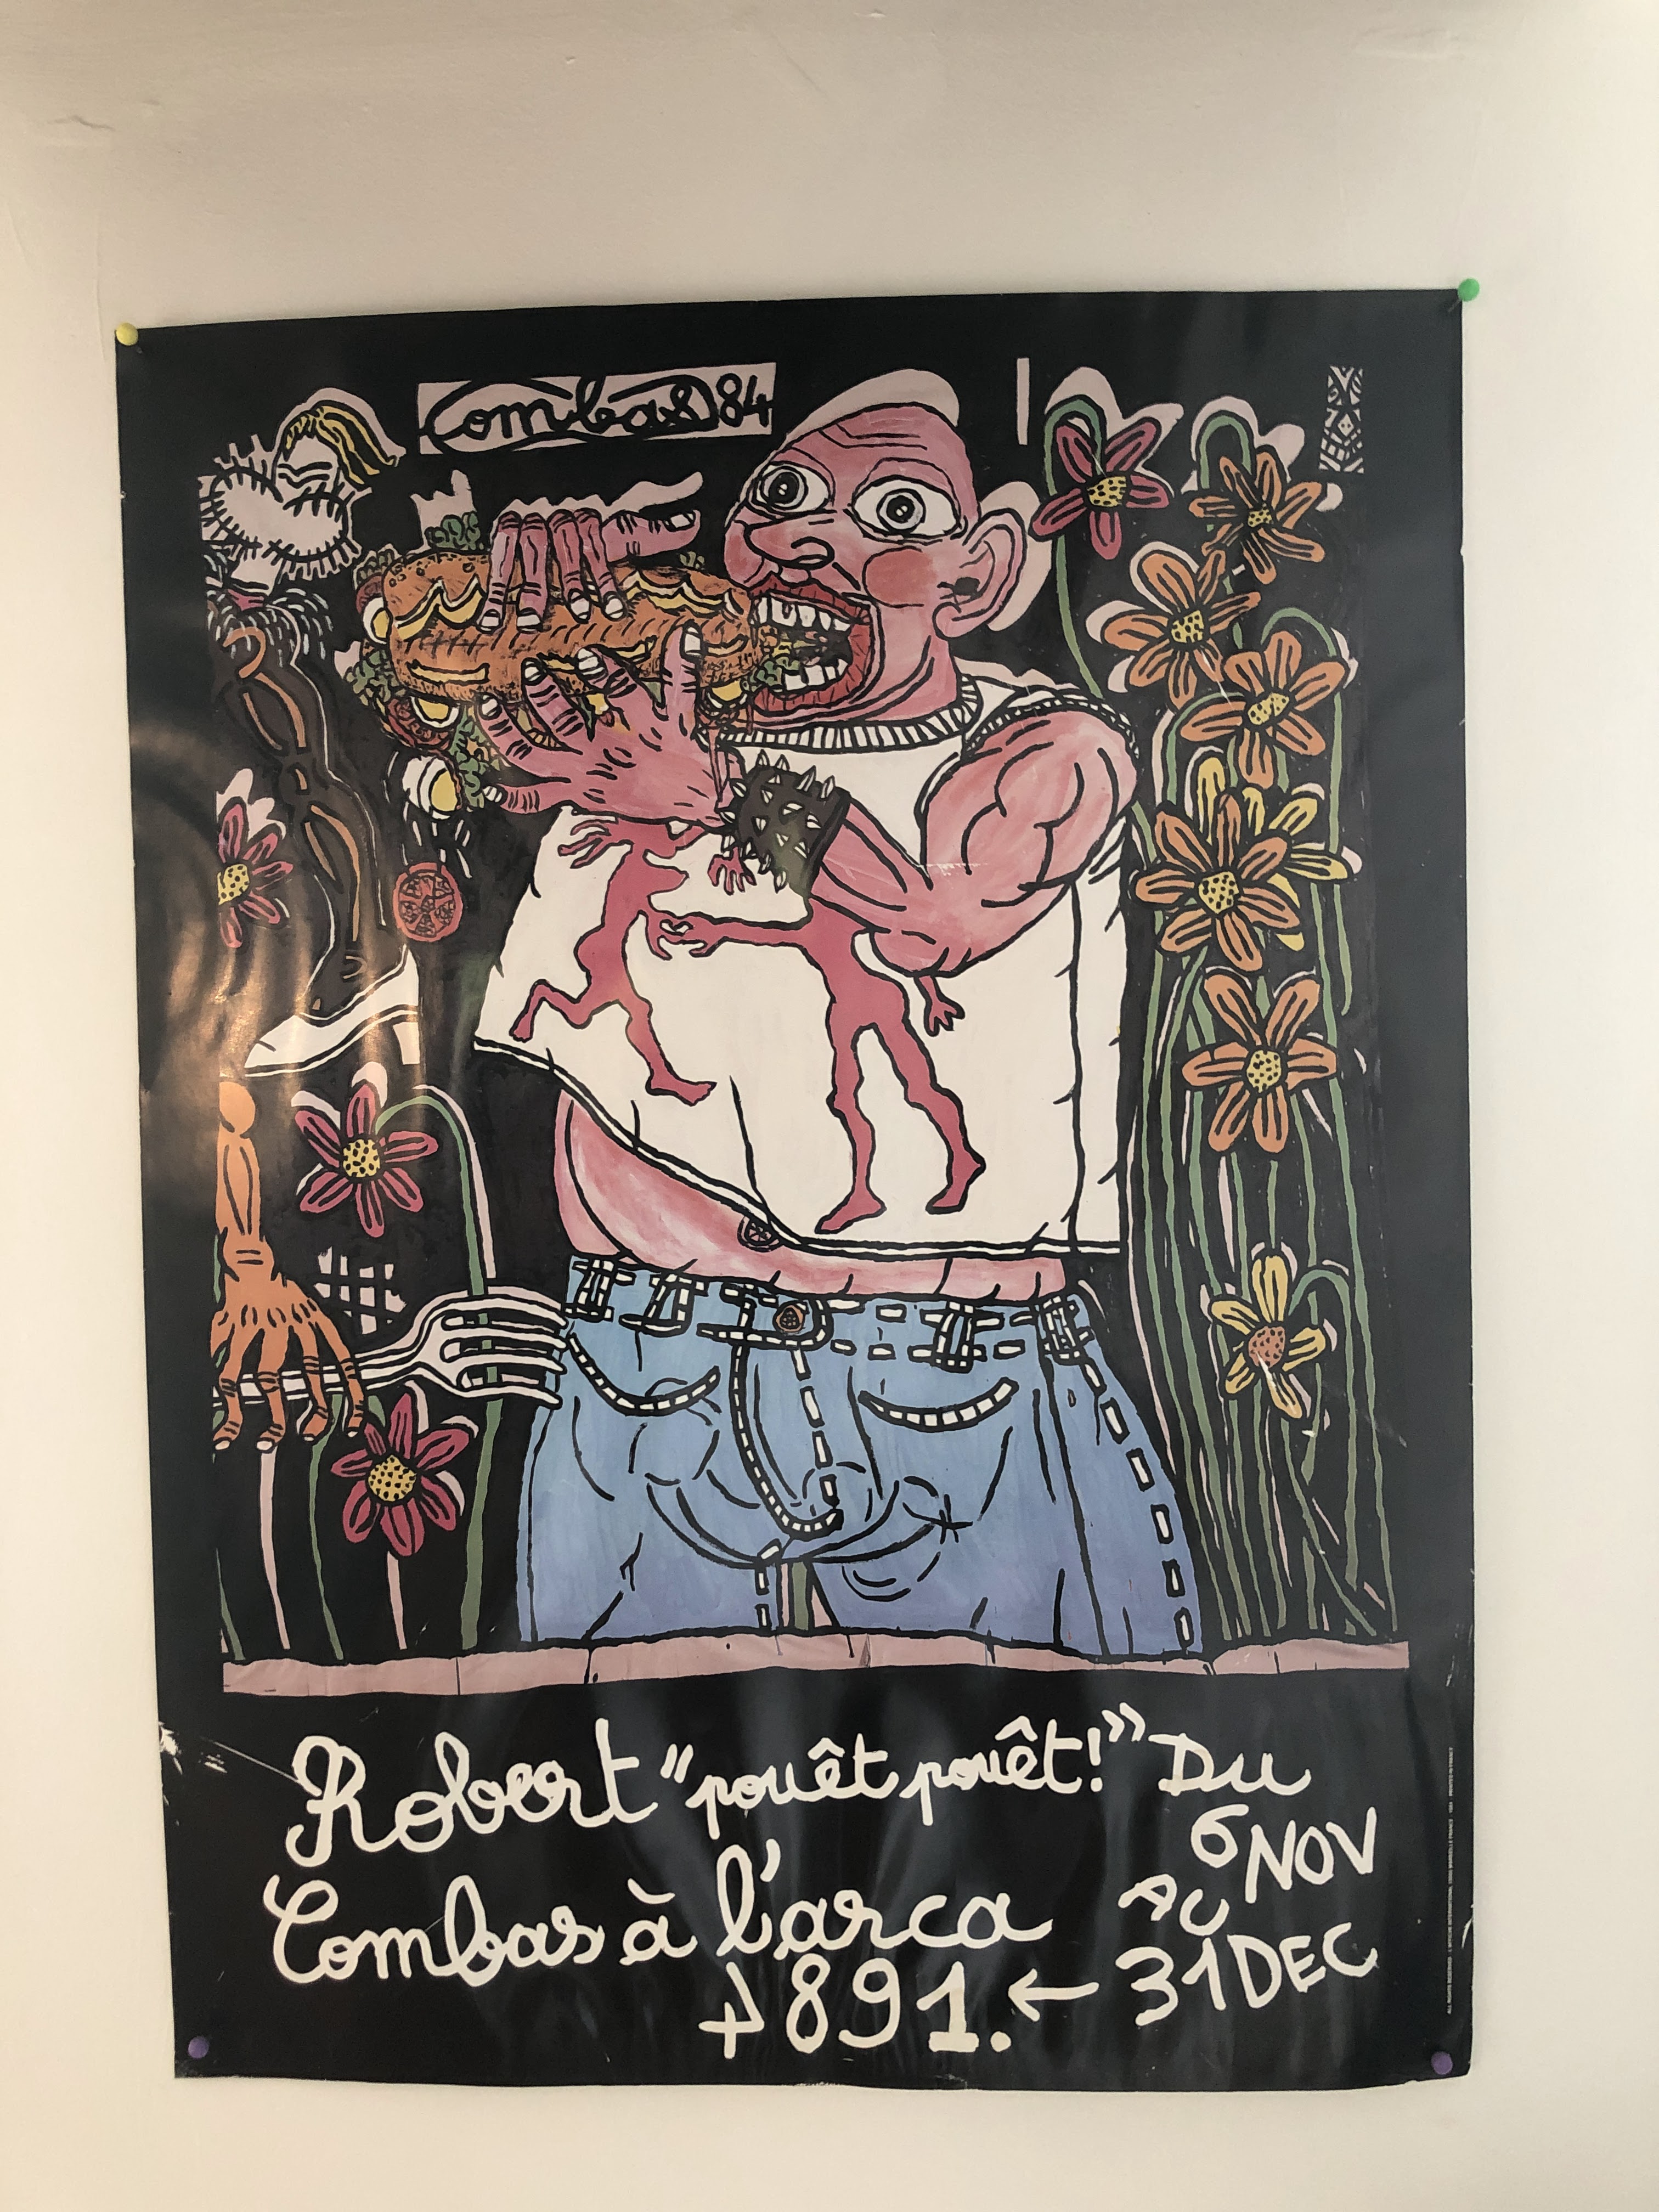 Combas 84
Robert "pouêt pouêt!" Du
6 NOV
Combas à l'arca AU
1891. ← 31 DEC